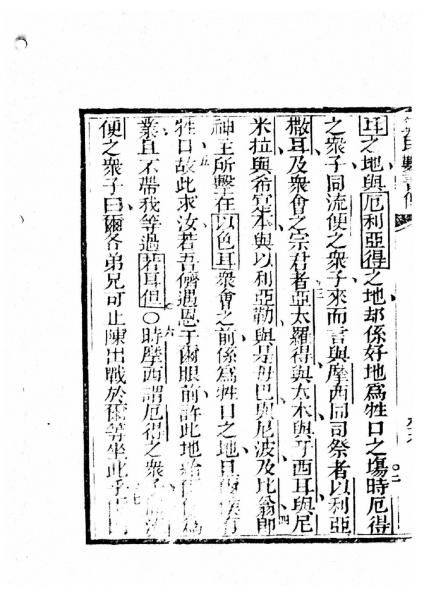 耳之地與厄利亞得之地却係好地爲牲口之塲時厄得
之衆子同流便之衆子來而言與摩西同司祭者以利亞
撒耳及衆會之宗君者亞太羅得與大本與牙西耳與尼
米拉與希實本與以利亞勒與是母巴與尼波及比翁即
神主所擊在以色耳衆會之前係爲牲口之地且
牲口故此求汝若吾儕遇恩于爾眼前許此地給 爲
業且不帶我等過若耳但〇時摩西謂厄得之衆子
便之衆子曰爾各弟兄可止陳出戰於爾等坐此乎